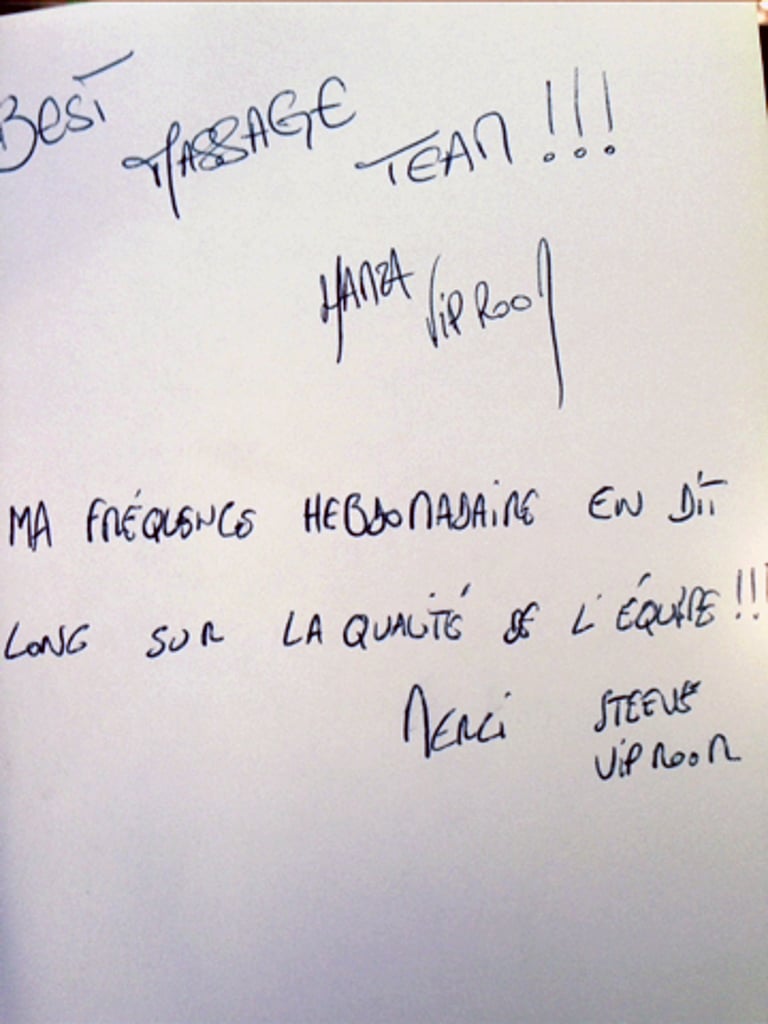 BEST MASSAGE TEAM !!!
HAMZA VIP ROOM
MA FRÉQUENCE HEBDOMADAIRE EN DIT
LONG SUR LA QUALITÉ DE L'ÉQUIPE !!!
MERCI STEEVE
VIP ROOM